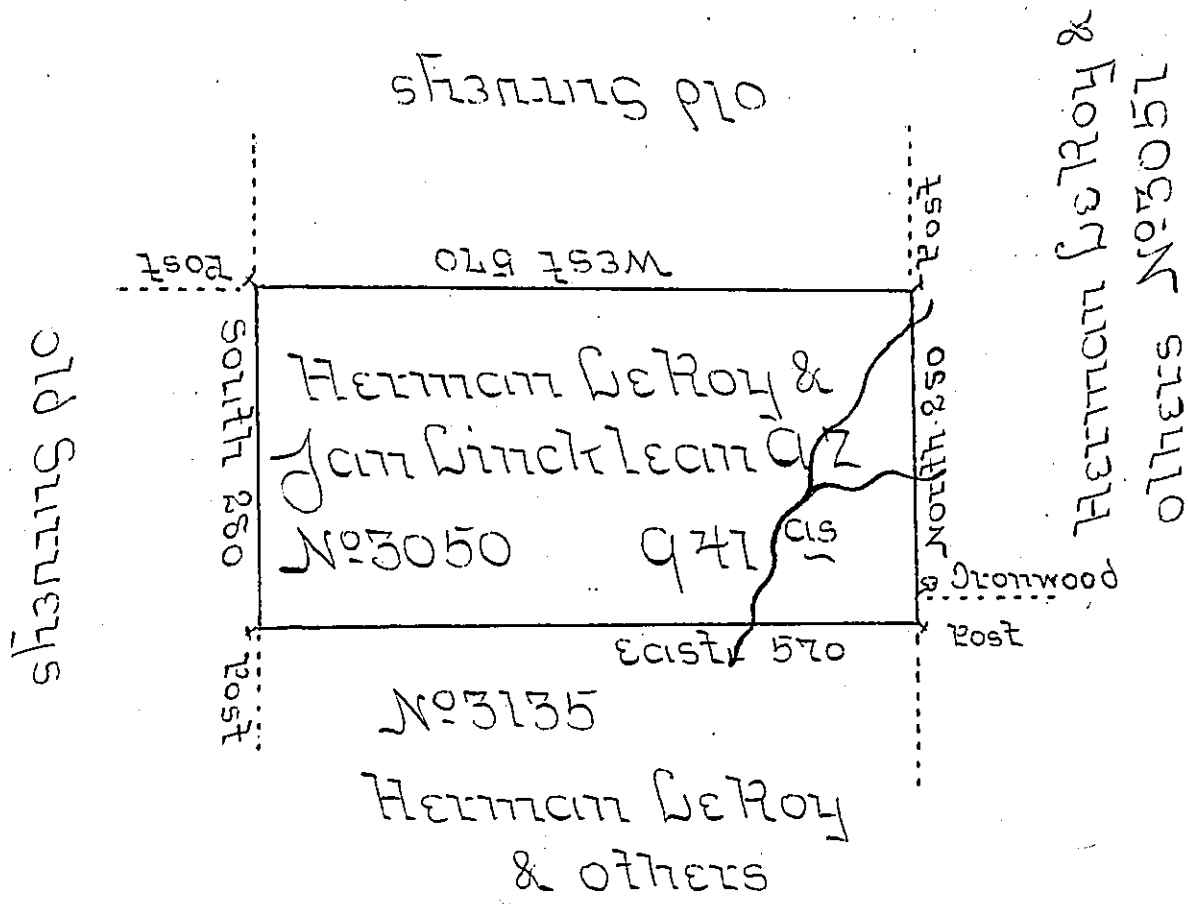 Old Surveys
Post
West 570
Post
Old Surveys
South 280
Herman LeRoy &
Jan Lincklean qz
No 3050 941 as
North 280
Ironwood
Post
Post
East 570
No 3135
Herman LeRoy
& others
Herman LeRoy &
others No 3051